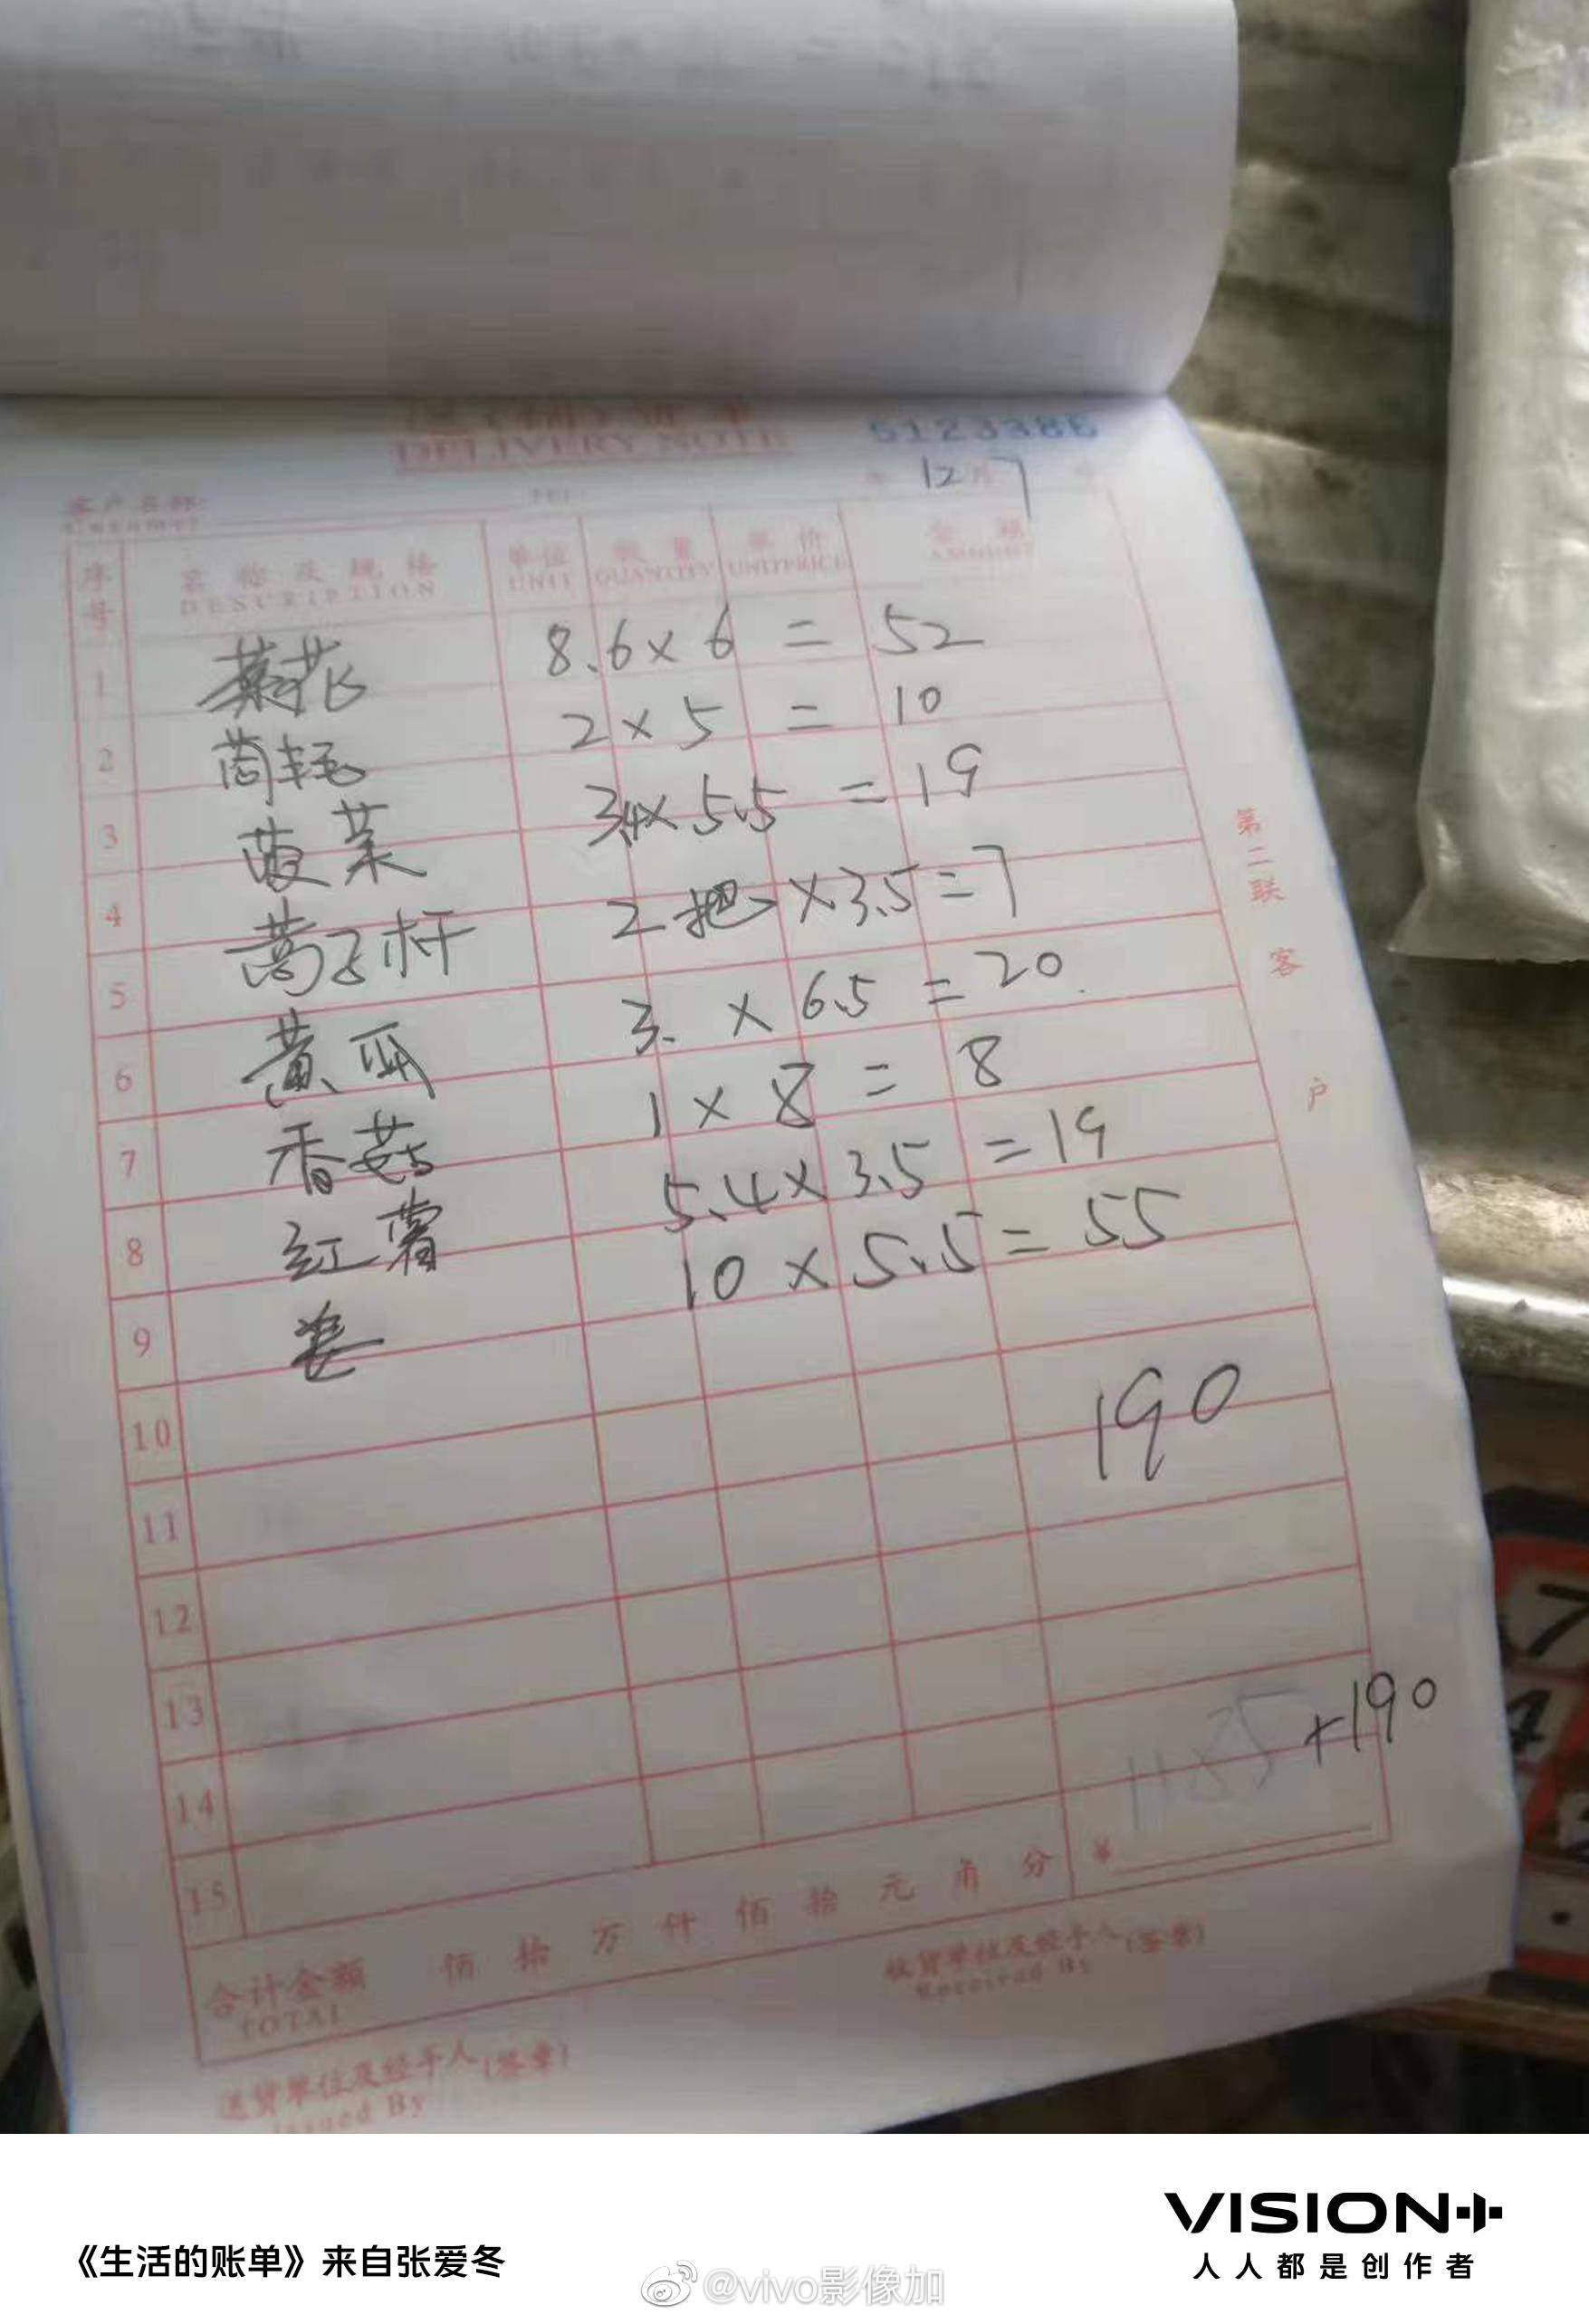 DELIVERY NOTE
5123386
12月7
客户名称:
序号 名称及规格 单位 数量 单价 金额
DESCRIPTION UNIT QUANTITY UNITPRICE AMOUNT
1 菜花 8.6×6 = 52
2 茼蒿 2×5 = 10
3 菠菜 3.4×5.5 = 19
4 蒿子杆 2把×3.5=7
5 黄瓜 3. × 6.5 = 20
6 香菇 1 × 8 = 8
7 红薯 5.4×3.5 = 19
8 姜 10 × 5.5 = 55
9
10
190
11
12
13
14
+190
15
合计金额 佰 拾 万 仟 佰 拾 元 角 分 ¥
TOTAL
收货单位及经手人(签章)
Received By
送货单位及经手人(签章)
Issued By
第二联 客户
《生活的账单》来自张爱冬
VISION+
人人都是创作者
@vivo影像加